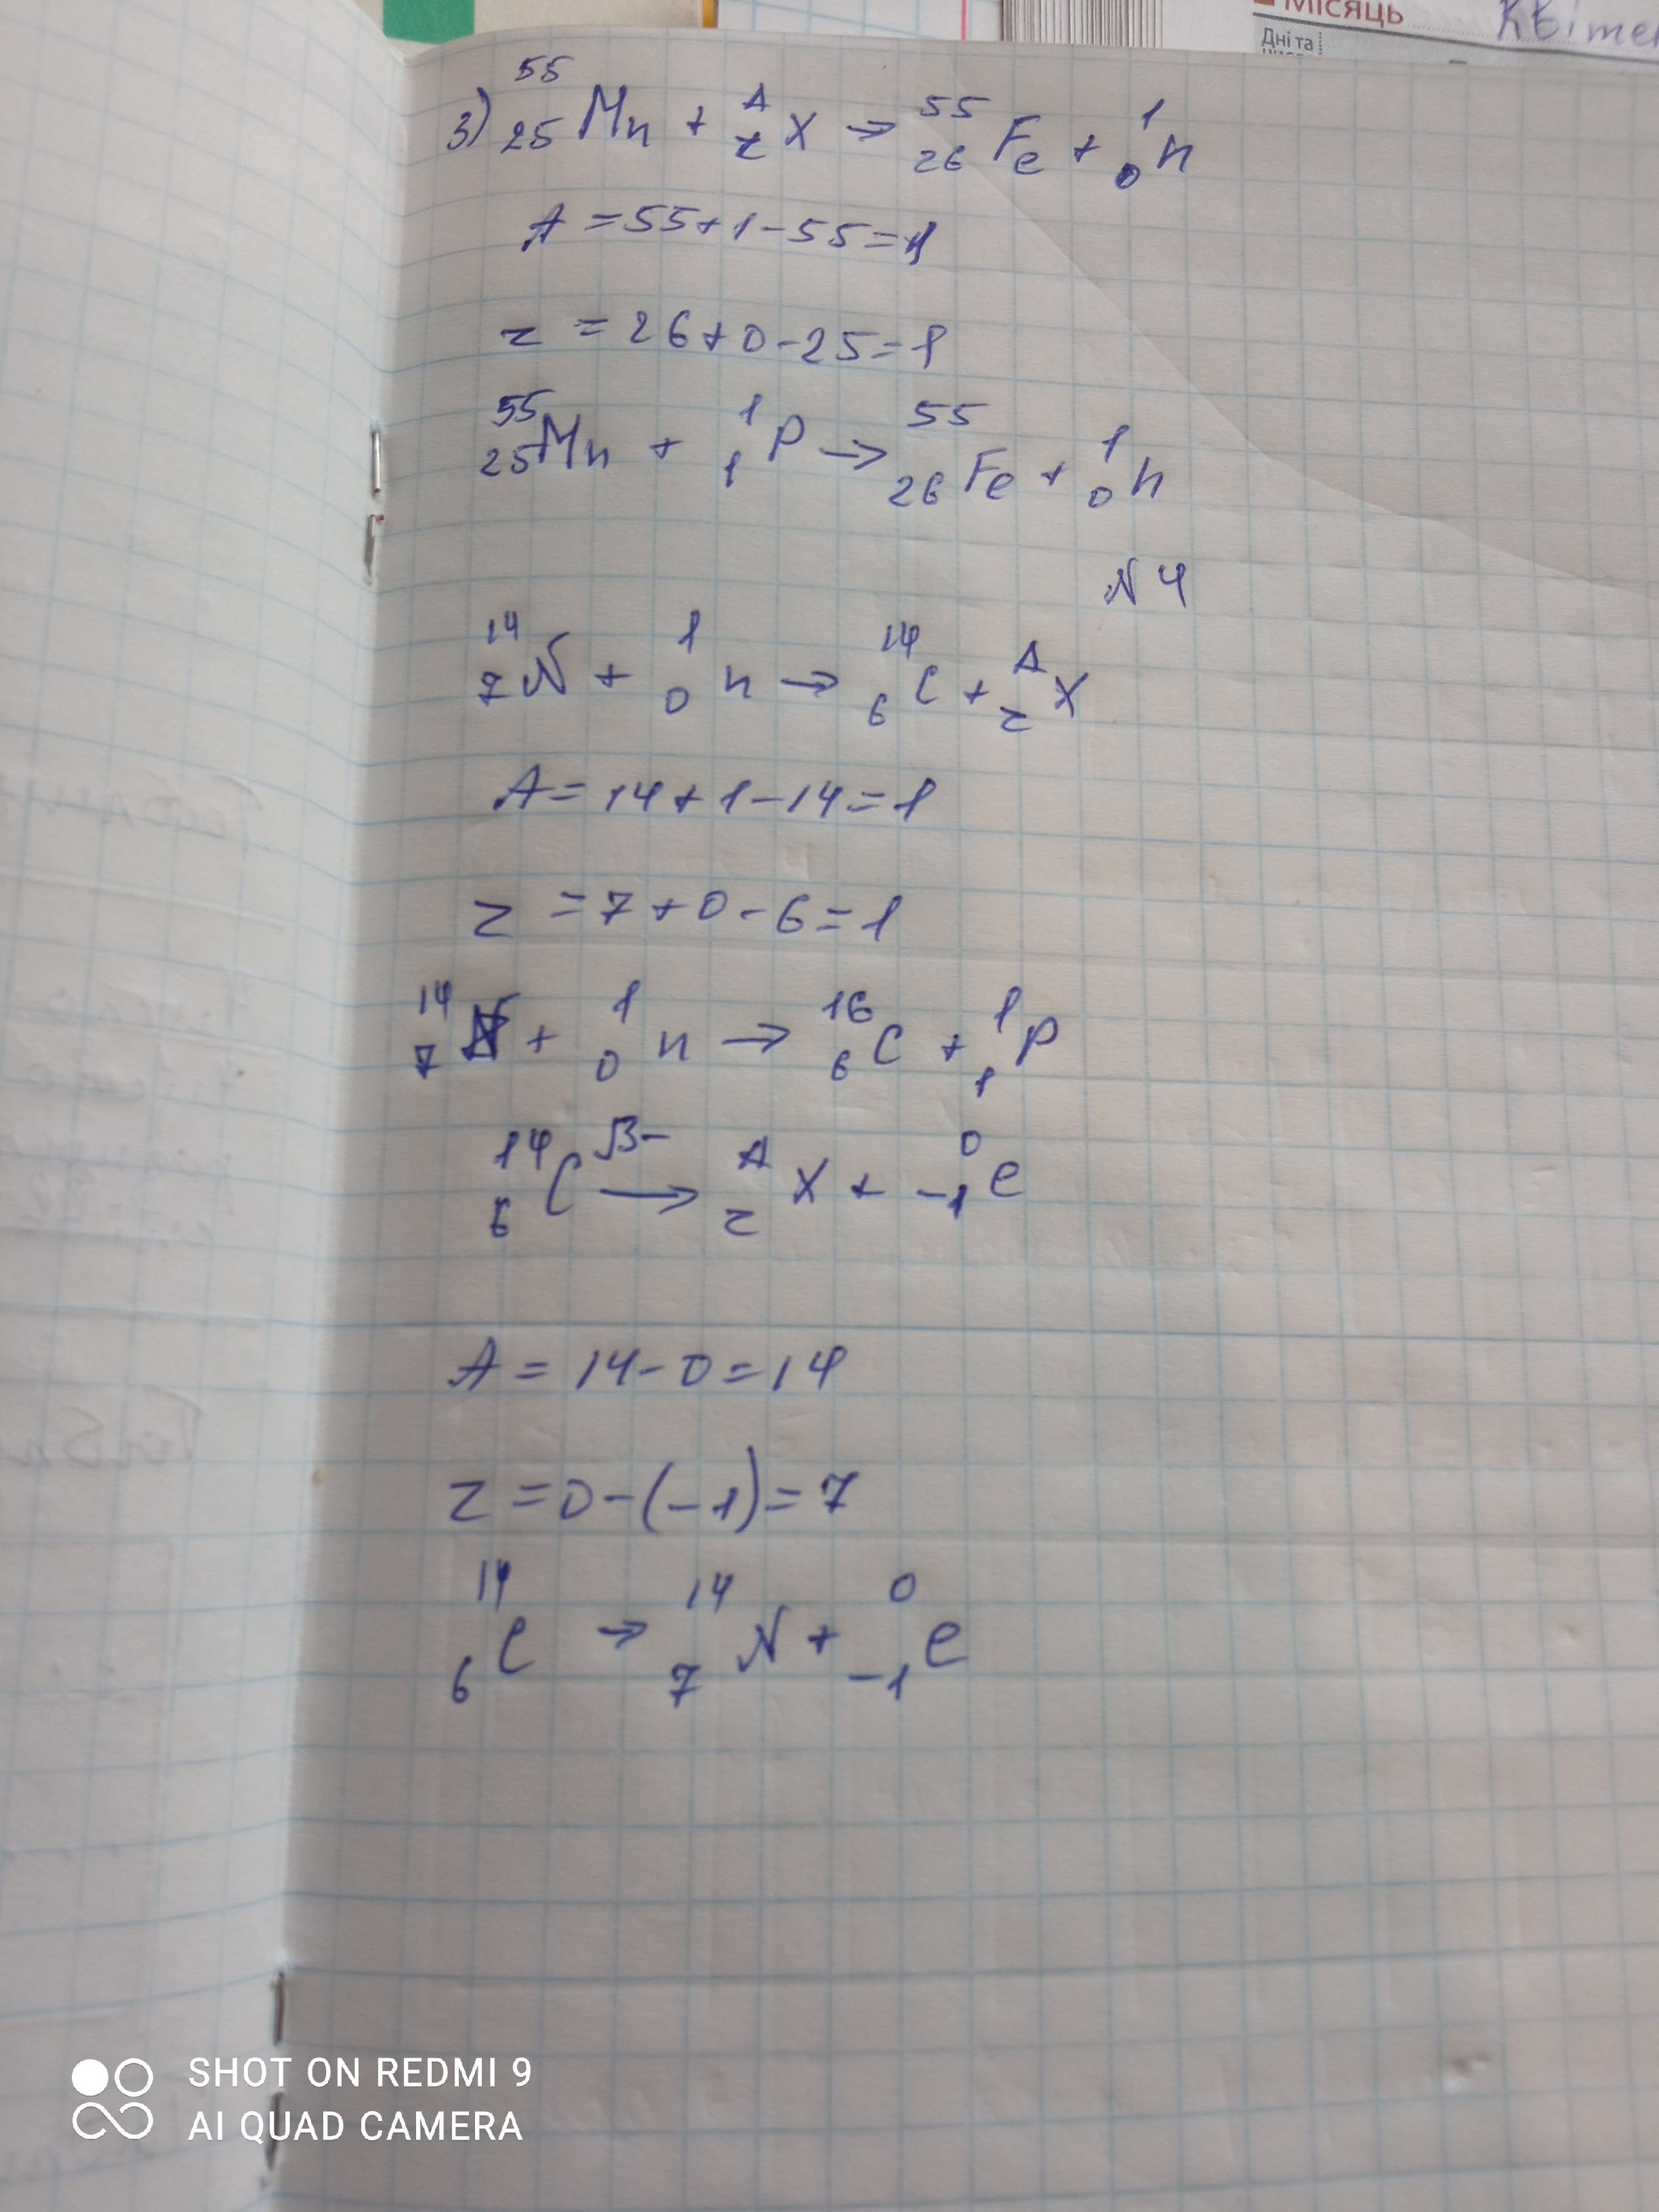 МІСЯЦЬ
Дні та
3) ⁵⁵₂₅Mn + ᴬ_zX → ⁵⁵₂₆Fe + ¹₀n
A = 55+1-55=1
z = 26+0-25=1
⁵⁵₂₅Mn + ¹₁P → ⁵⁵₂₆Fe + ¹₀n
N 4
¹⁴₇N + ¹₀n → ¹⁴₆C + ᴬ_zX
A = 14+1-14=1
z = 7+0-6=1
¹⁴₇N + ¹₀n → ¹⁶₆C + ¹₁P
¹⁴₆C β- → ᴬ_zX + ⁰₋₁e
A = 14-0=14
z = 0-(-1)=7
¹⁴₆C → ¹⁴₇N + ⁰₋₁e
SHOT ON REDMI 9
AI QUAD CAMERA